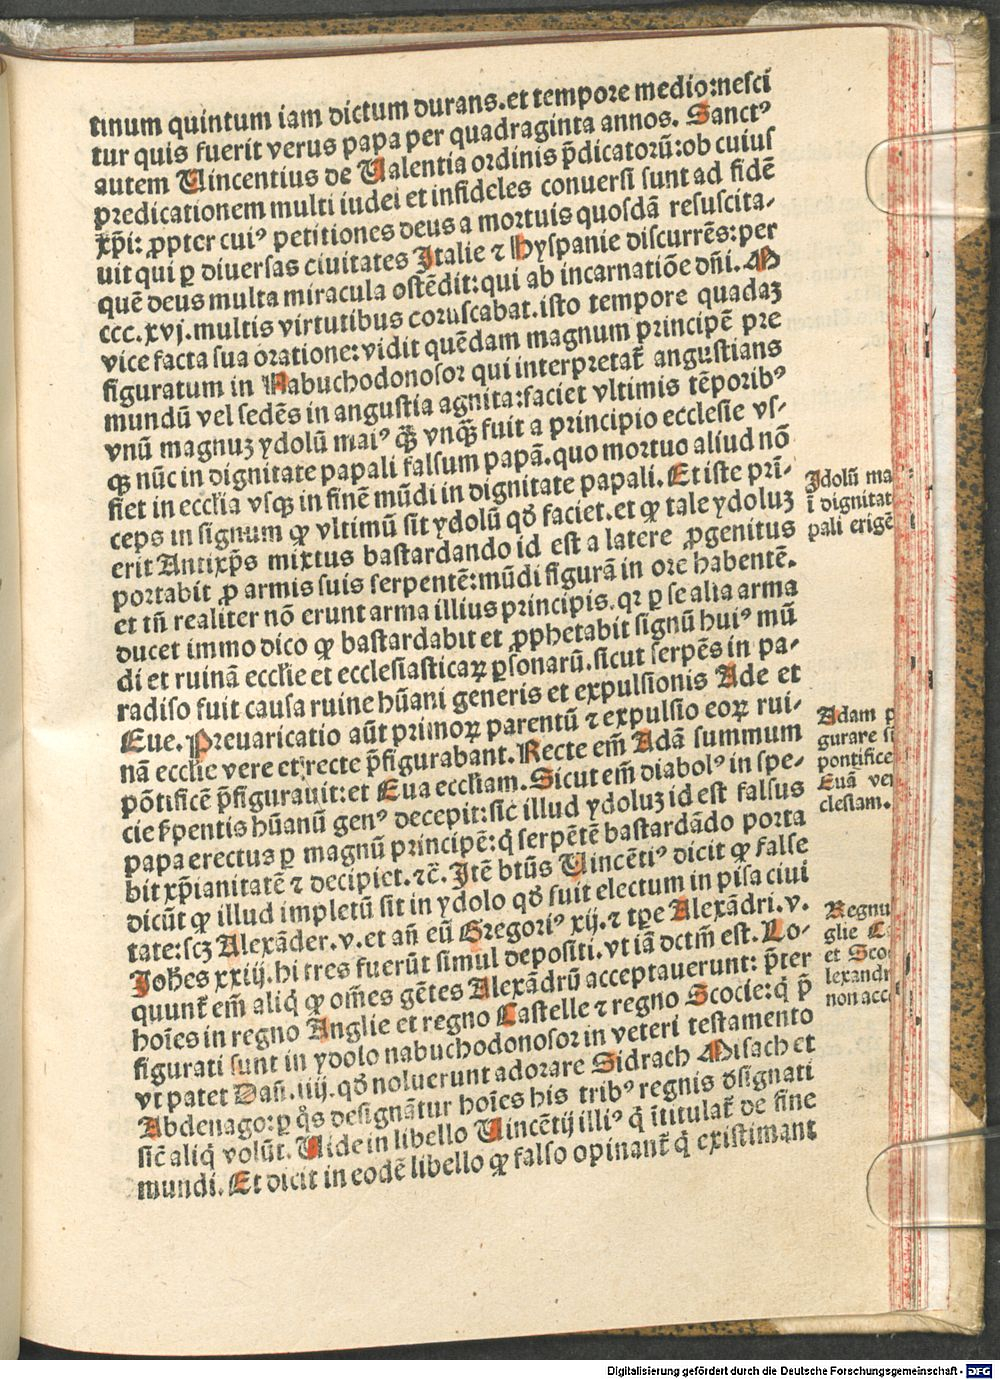 tinum quintum iam dictum durans.et tempore medio:nesci
tur quis fuerit verus papa per quadraginta annos. Sanctꝰ
autem Vincentius de Valentia ordinis p̄dicatorū:ob cuius
predicationem multi iudei et infideles conuersi sunt ad fidē
xp̄i: ꝓpter cuiꝰ petitiones deus a mortuis quosdā resuscita-
uit qui ꝑ diuersas ciuitates Italie ⁊ Hyspanie discurrēs:per
quē deus multa miracula ostēdit:qui ab incarnatiōe dn̄i.M
ccc.xvj.multis virtutibus coruscabat.isto tempore quadaꝫ
vice facta sua oratione:vidit quēdam magnum principē pre
figuratum in Nabuchodonosor qui interpretat̄ angustians
mundū vel sedēs in angustia agnita:faciet vltimis tēporibꝰ
vnū magnuꝫ ydolū maiꝰ qꝫ̄ vnqꝫ̄ fuit a principio ecclesie vs-
qꝫ nūc in dignitate papali falsum papā.quo mortuo aliud nō
fiet in eccl̄ia vsqꝫ in finē mūdi in dignitate papali. Et iste prī-
ceps in signum ꝙ vltimū sit ydolū qđ faciet.et ꝙ tale ydoluꝫ
erit Antixp̄s mixtus bastardando id est a latere ꝓgenitus
portabit ꝓ armis suis serpentē:mūdi figurā in ore habentē.
et tn̄ realiter nō erunt arma illius principis.qꝛ ꝑ se alia arma
ducet immo dico ꝙ bastardabit et ꝓphetabit signū huiꝰ mū
di et ruinā eccl̄ie et ecclesiasticaꝝ ꝑsonarū.sicut serpēs in pa-
radiso fuit causa ruine hūani generis et expulsionis Ade et
Eue. Preuaricatio aūt primoꝝ parentū ⁊ expulsio eoꝝ rui-
nā eccl̄ie vere et recte p̄figurabant. Recte em̄ Adā summum
pōtificē p̄figurauit:et Eua eccl̄iam. Sicut em̄ diabolꝰ in spe-
cie s̄pentis hūanū genꝰ decepit:sic illud ydoluꝫ id est falsus
papa erectus ꝑ magnū principē:q̄ serpētē bastardādo porta
bit xp̄ianitatē ⁊ decipiet.⁊c̄. Itē btūs Vincētiꝰ dicit ꝙ false
dicūt ꝙ illud impletū sit in ydolo qđ fuit electum in pisa ciui
tate:scꝫ Alexāder.v.et an̄ eū Gregoriꝰ xij.⁊ tp̄e Alexādri.v.
Joh̄es xxiij.hi tres fuerūt simul depositi.vt iā dctm̄ est. Lo-
quunt̄ em̄ aliq̄ ꝙ om̄es gētes Alexādrū acceptauerunt: p̄ter
hoīes in regno Anglie et regno Castelle ⁊ regno Scocie:q̄ p̄
figurati sunt in ydolo nabuchodonosor in veteri testamento
vt patet Dan̄.iiij.qđ noluerunt adorare Sidrach Misach et
Abdenago:ꝑ q̄s designātur hoīes his tribꝰ regnis đsignati
sic̄ aliq̄ volūt. Vide in libello Vincētij illiꝰ q̄ ītitulat̄ de fine
mundi. Et dicit in eodē libello ꝙ falso opinant̄ q̄ existimant
Idolū ma
ī dignitat
pali erigē
Adam p
gurare
pontifice
Euā
clesiam.
Regnu
glie Ca
et Sco
lexandr
non acc
Digitalisierung gefördert durch die Deutsche Forschungsgemeinschaft - DFG